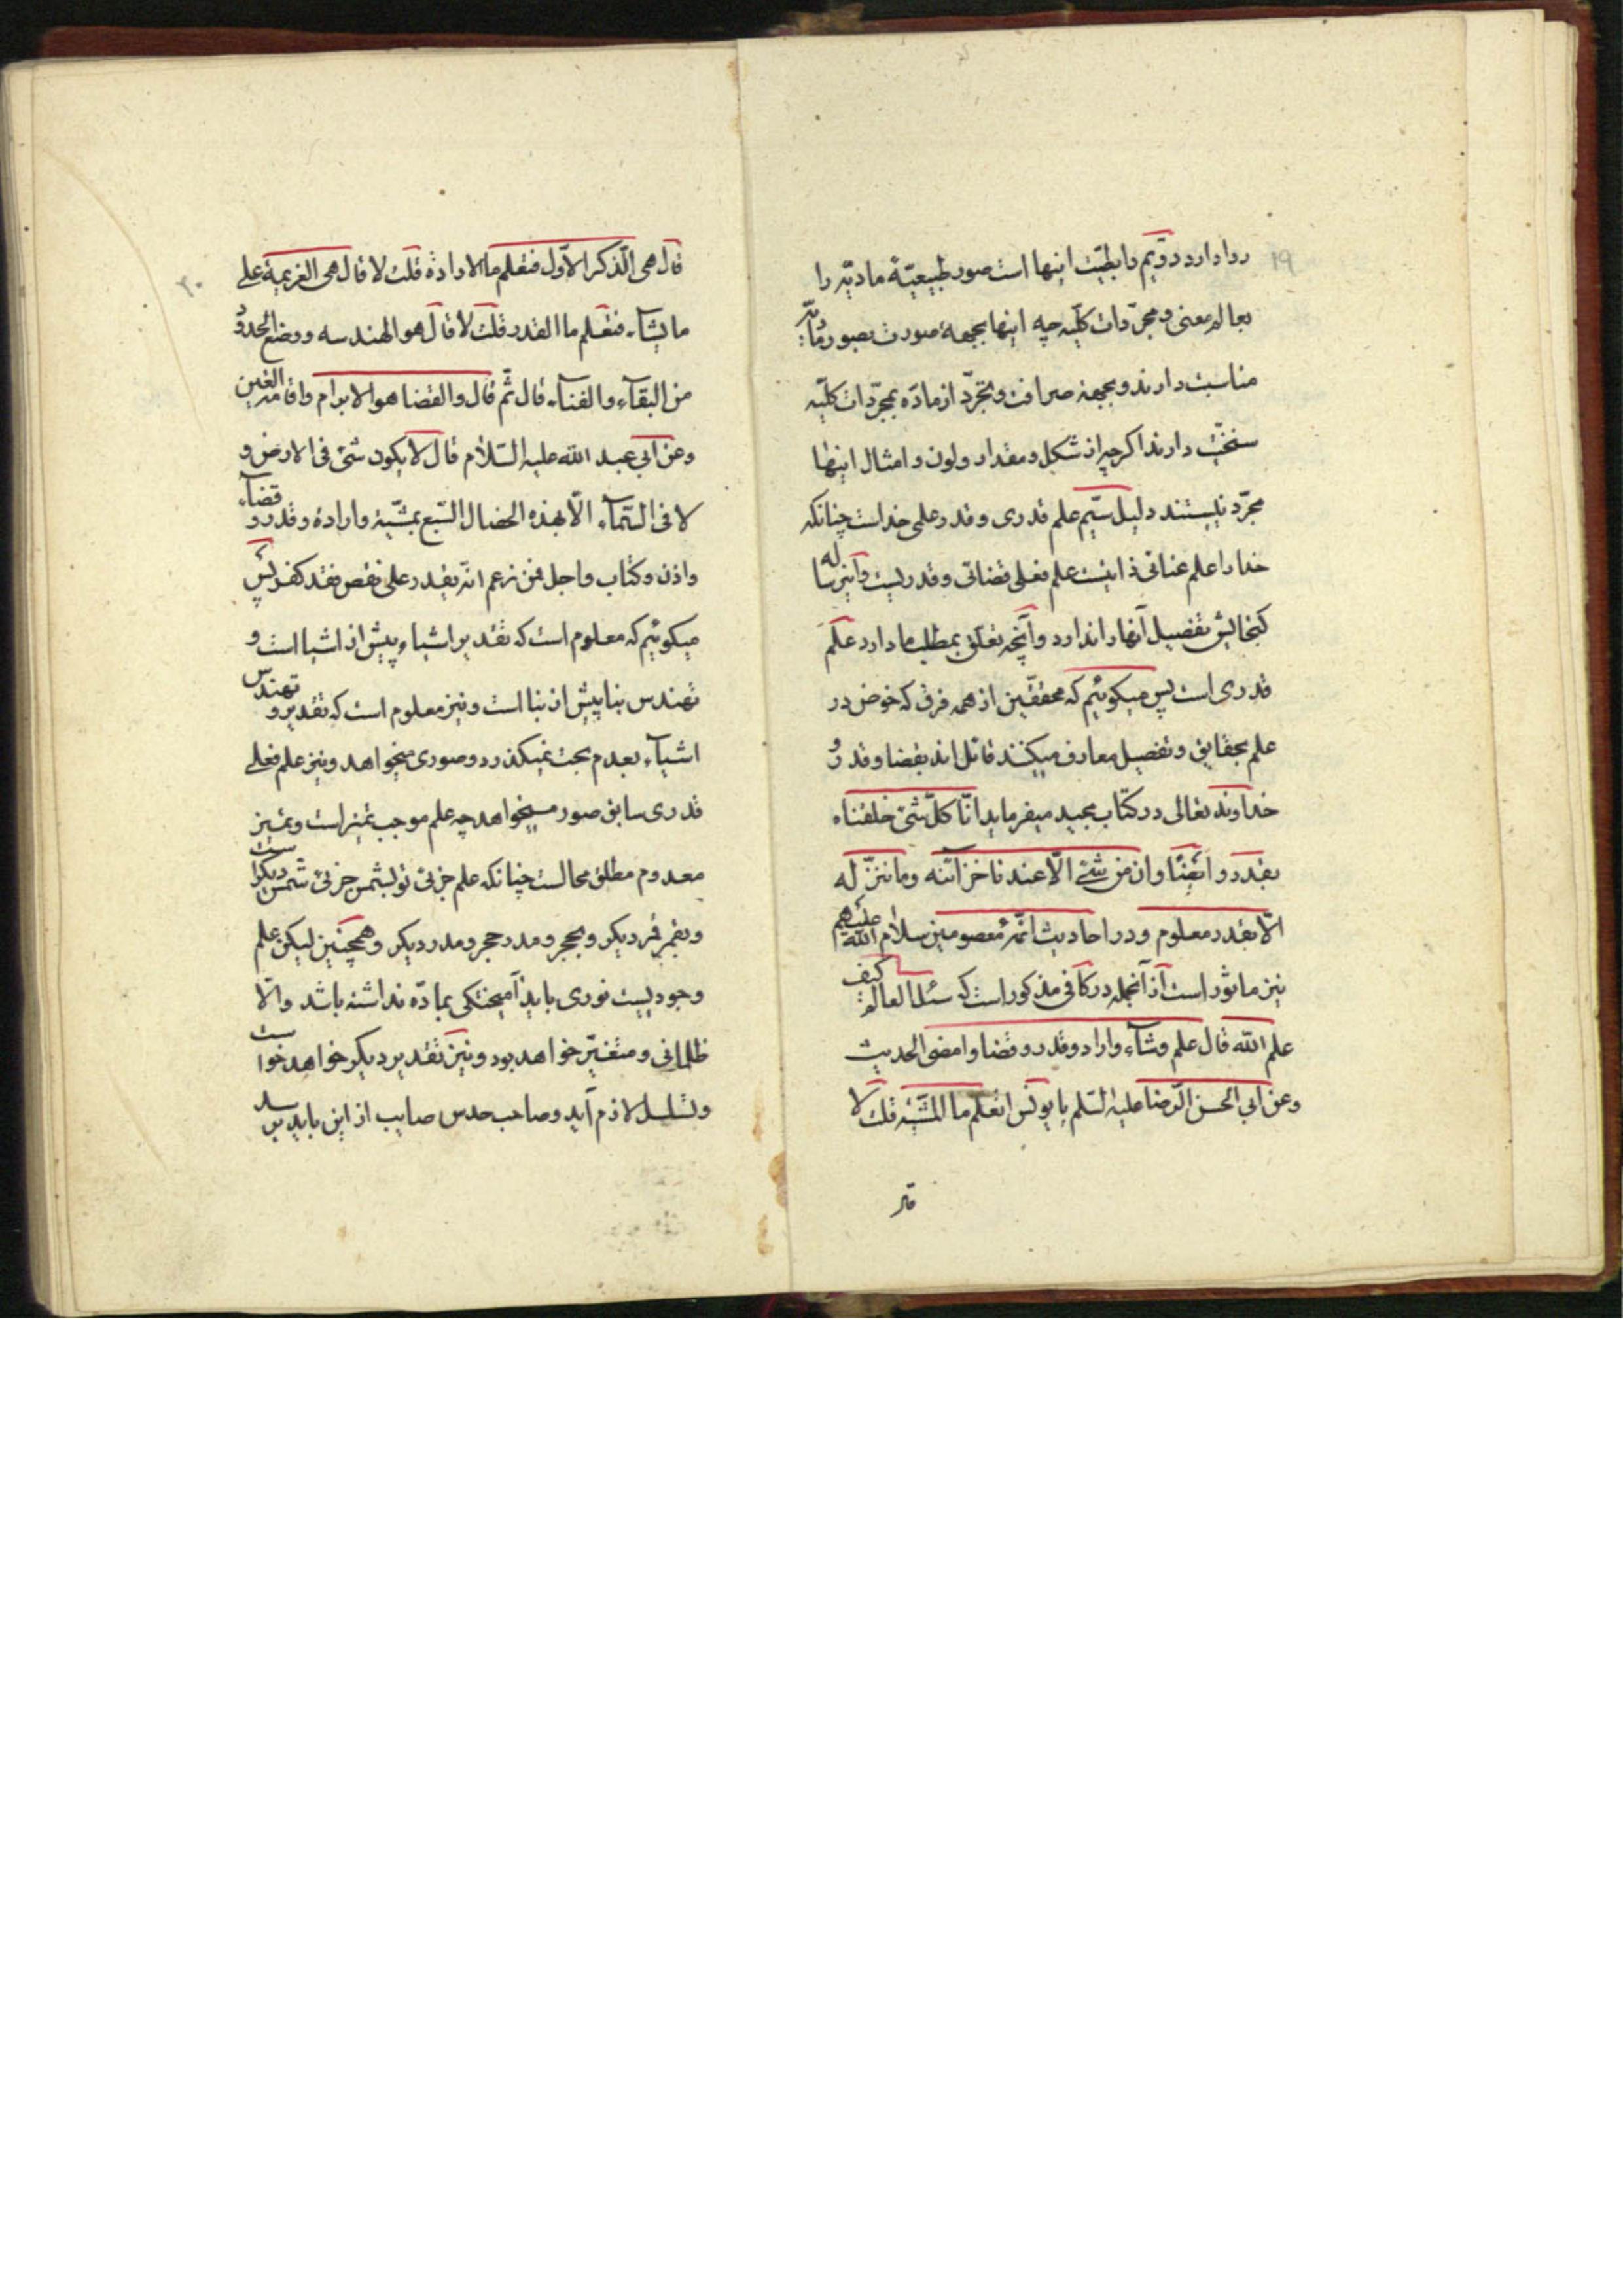 ۱۹
روا دارد دویم رابطیّت اینها است صور طبیعیّهٔ مادیّه را
بعالم معنی و مجرّدات کلّیه چه اینها بجههٔ صورت بصور مادّیّه
مناسبت دارند و بجههٔ صرافت و تجرّد از مادّه بمجرّدات کلّیه
سنخیّت دارند اگرچه از شکل و مقدار و لون و امثال اینها
مجرّد نیستند دلیل سیّم علم قدری و قدر علمی خداست چنانکه
خدا را علم عنائی ذاتیست علم فعلی قضائی و قدریست و این رساله
گنجایش تفصیل آنها را ندارد و آنچه تعلّق بمطلب ما دارد علم
قدری است پس میگوئیم که محققین از همه فرق که خوض در
علم بحقایق و تفصیل معارف میکنند قائل اند بقضا و قدر و
خداوند تعالی در کتاب مجید میفرماید انّا کلّ شئ خلقناه
بقدر و ایضًا و ان من شئ الّا عندنا خزائنه و ما ننزّله
الّا بقدر معلوم و در احادیث ائمّهٔ معصومین سلام الله علیهم
نیز ماثور است از آنجمله در کافی مذکور است که سئل العالم کیف
علم الله قال علم و شآء و اراد و قدر و قضا و امضی الحدیث
و عن ابی الحسن الرّضا علیه السّلم یا یونس اتعلم ما المشیّه قلت لا
قال
۲۰
قال هی الّذکر الاوّل فتعلم ما الارادة قلت لا قال هی العزیمة علی
ما یشآء فتعلم ما القدر قلت لا قال هو الهندسه و وضع الحدود
من البقآء و الفنآء قال ثّم قال و القضا هو الابرام و اقامة العین
و عن ابی عبد الله علیه السّلام قال لا یکون شئ فی الارض و
لا فی السّمآء الّا بهذه الخصال السّبع بمشیّة و ارادة و قدر و قضآء
و اذن و کتاب و اجل فمن زعم انّه یقدر علی نقص فقد کفر پس
میگوئیم که معلوم است که تقدیر اشیاء پیش از اشیا است و
تهندس بنا پیش از بنا است و نیز معلوم است که تقدیر و تهندس
اشیآء بعدم بحت نمیگذرد و صوری میخواهد و نیز علم فعلی
قدری سابق صور میخواهد چه علم موجب تمیز است و تمییز
معدوم مطلق محالست چنانکه علم جزئی تو بشمس جزئی شمس دیگر است
و بقمر قمر دیگر و بحجر و مدر حجر و مدر دیگر و همچنین لیکن علم
وجودیست نوری باید آمیختگی بمادّه نداشته باشد و الّا
ظلمانی و متغیّر خواهد بود و نیز تقدیر دیگر خواهد خواست
و تسلسل لازم آید و صاحب حدس صایب از این باید برسد